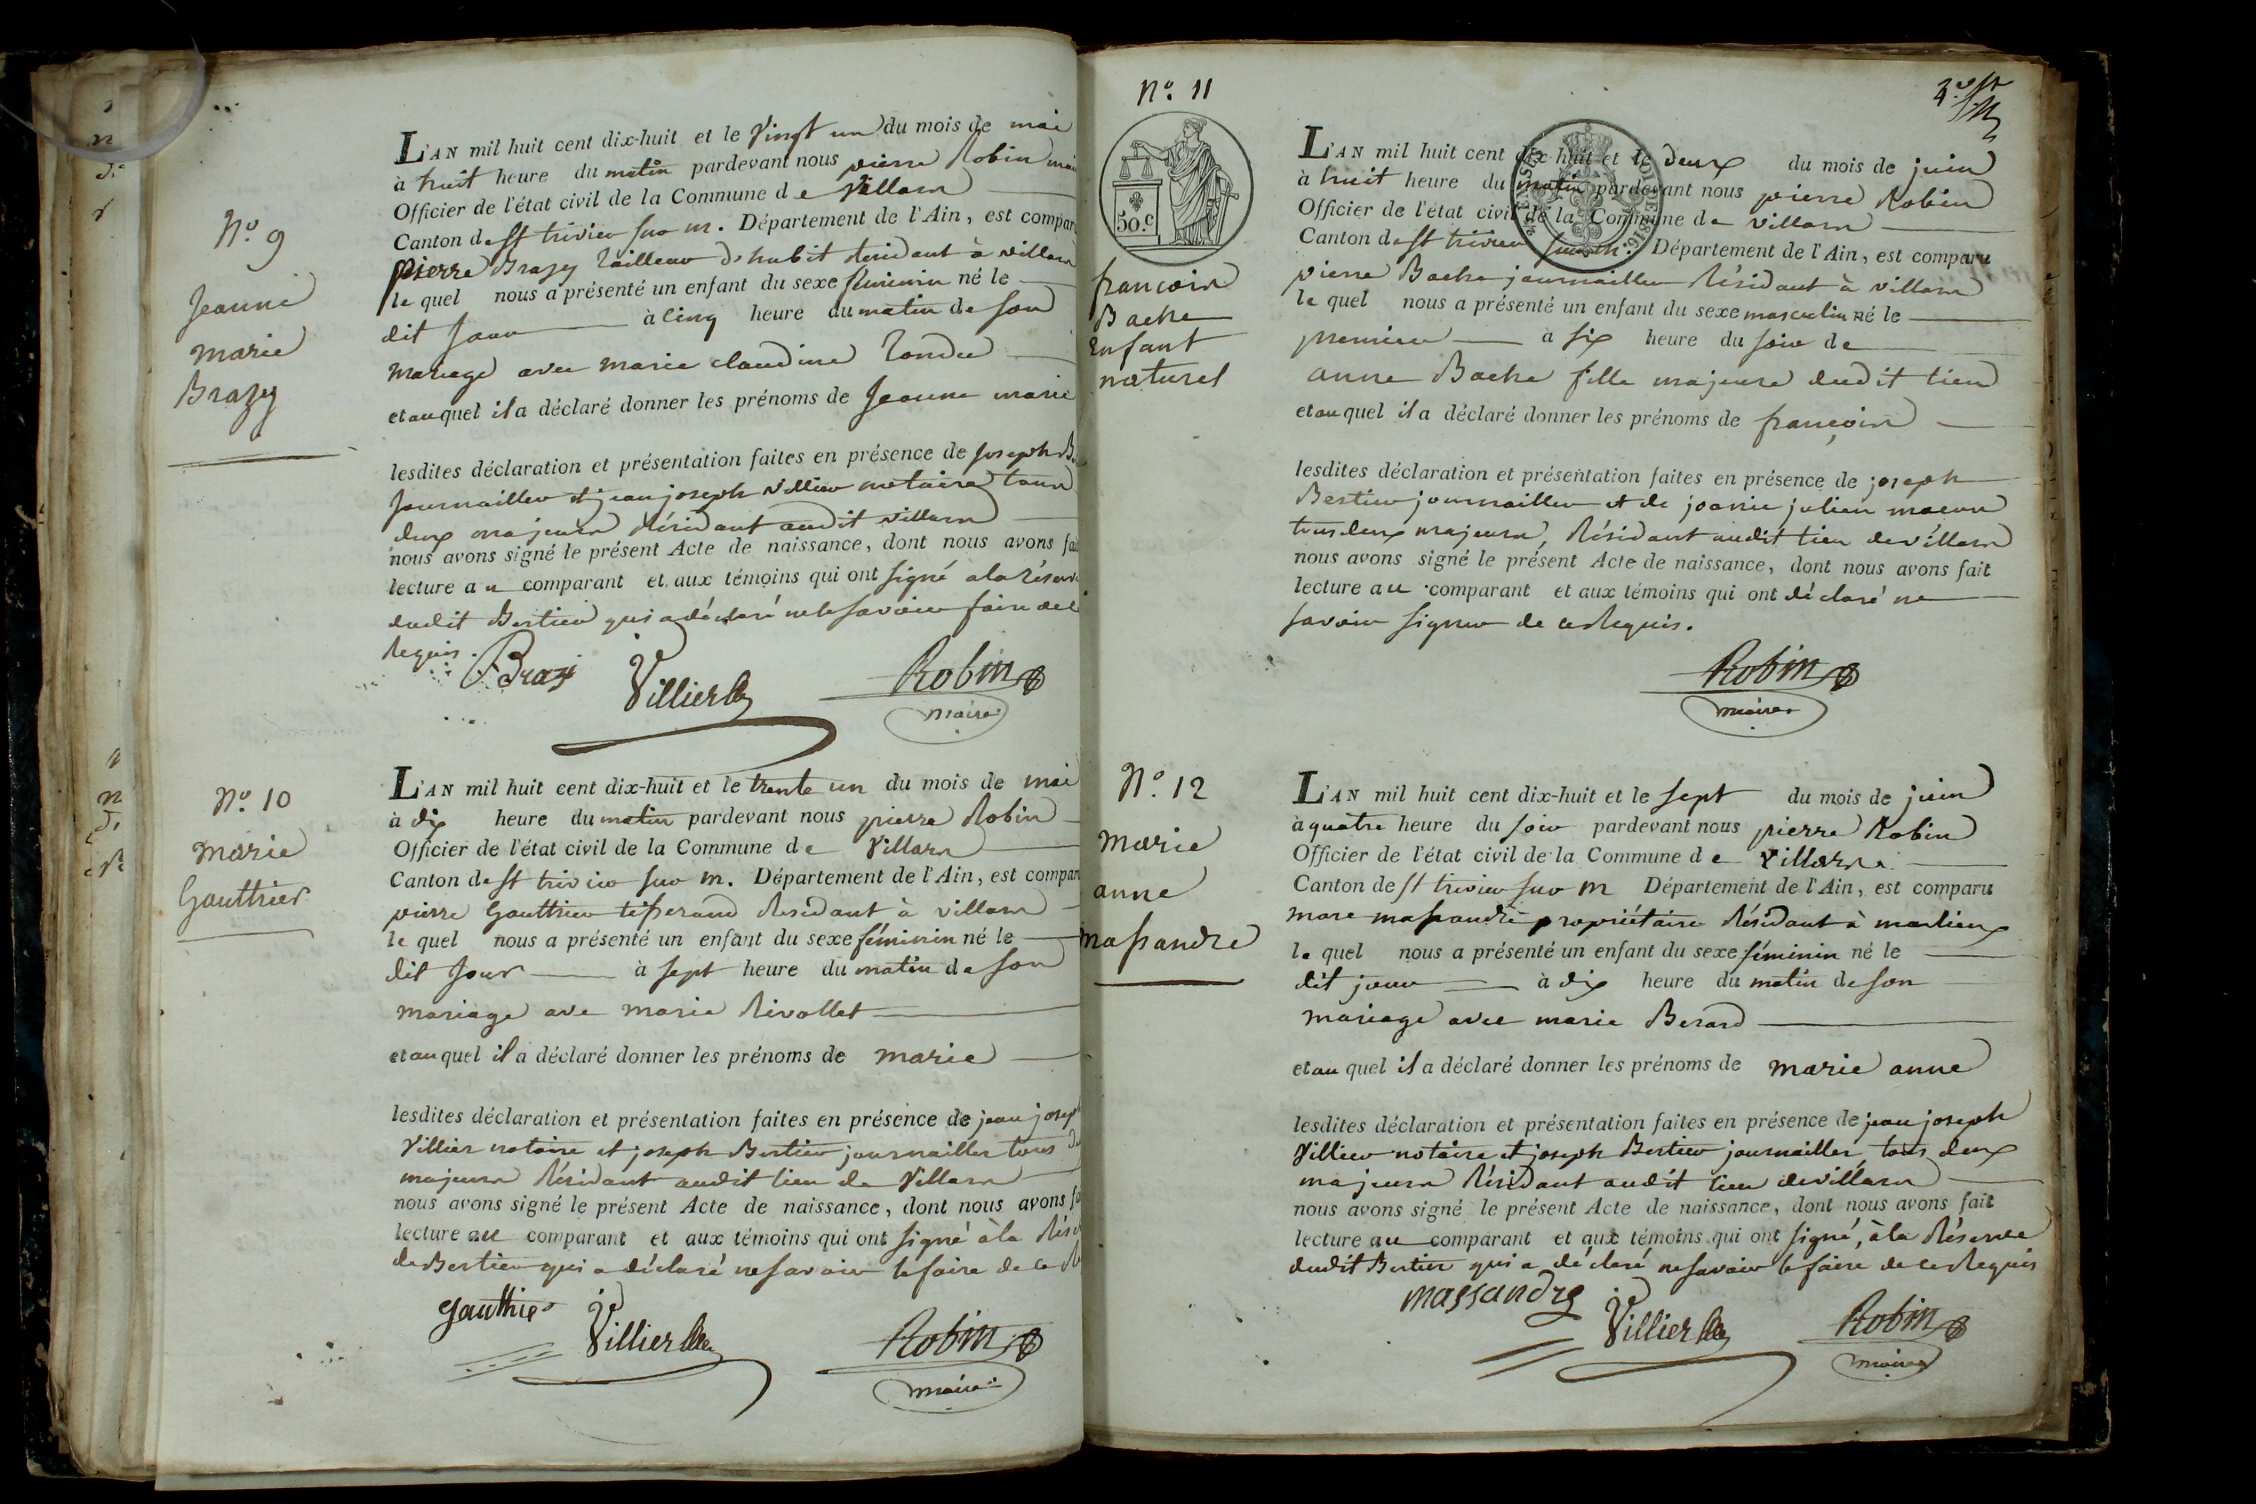 N.o 9
Jeanne
marie
Brazy
L'AN mil huit cent dix-huit et le Vingt un du mois de mai
à huit heure du matin pardevant nous pierre Robin mai
Officier de l'état civil de la Commune de Villars
Canton de St trivier sur m. Département de l'Ain, est compar
pierre Brazy tailleur d'habit Résidant à villars
le quel nous a présenté un enfant du sexe féminin né le
dit Jour à cinq heure du matin de son
mariage avec marie claudine
et auquel il a déclaré donner les prénoms de Jeanne marie
lesdites déclaration et présentation faites en présence de Joseph B
Journaillier et jean joseph Villier notaire tous
deux majeurs Résidant audit villars
nous avons signé le présent Acte de naissance, dont nous avons fai
lecture au comparant et aux témoins qui ont signé a la réserve
dudit Bertier qui a déclaré ne le savoir faire de ce
Requis.
Brazi Villier Robin
maire
N.o 10
Marie
Gauthier
L'AN mil huit cent dix-huit et le trente un du mois de mai
à dix heure du matin pardevant nous pierre Robin
Officier de l'état civil de la Commune de Villars
Canton de St trivier sur m. Département de l'Ain, est compar
pierre Gauthier tisserand Résidant à villars
le quel nous a présenté un enfant du sexe féminin né le
dit Jour à sept heure du matin de son
mariage ave marie Rivollet
et auquel il a déclaré donner les prénoms de marie
lesdites déclaration et présentation faites en présence de jean joseph
Villier notaire et joseph Bertier journaillier tous
majeurs Résidant audit lieu de Villars
nous avons signé le présent Acte de naissance, dont nous avons f
lecture au comparant et aux témoins qui ont signé à la Rés
de Bertier qui a déclaré ne savoir le faire de ce
gauthier Villier Robin
maire
N.o 11
50.c
françois
Bache
Enfant
naturel
L'AN mil huit cent dix-huit et le deux du mois de juin
à huit heure du matin pardevant nous pierre Robin
Officier de l'état civil de la Commune de villars
Canton de St trivier sur m. Département de l'Ain, est comparu
pierre Bache journaillier Résidant à villars
le quel nous a présenté un enfant du sexe masculin né le
premier à six heure du soir de
anne Bache fille majeure dudit lieu
et auquel il a déclaré donner les prénoms de françois
lesdites déclaration et présentation faites en présence de joseph
Bertier journaillier et de joanie julien macon
tous deux majeurs, Résidant audit lieu de villars
nous avons signé le présent Acte de naissance, dont nous avons fait
lecture au comparant et aux témoins qui ont déclaré ne
savoir signer de ce Requis.
Robin
maire
N.o 12
Marie
anne
massandre
L'AN mil huit cent dix-huit et le sept du mois de juin
à quatre heure du soir pardevant nous pierre Robin
Officier de l'état civil de la Commune de Villars
Canton de St trivier sur m Département de l'Ain, est comparu
marc massandre propriétaire Résidant à marlieux
le quel nous a présenté un enfant du sexe féminin né le
dit jour à dix heure du matin de son
mariage avec marie Berard
et au quel il a déclaré donner les prénoms de marie anne
lesdites déclaration et présentation faites en présence de jean joseph
Villier notaire et joseph Bertier journaillier, tous deux
majeurs Résidant audit lieu de villars
nous avons signé le présent Acte de naissance, dont nous avons fait
lecture au comparant et aux témoins qui ont signé, à la Réserve
dudit Bertier qui a déclaré ne savoir le faire de ce Requis
massandre Villier Robin
maire